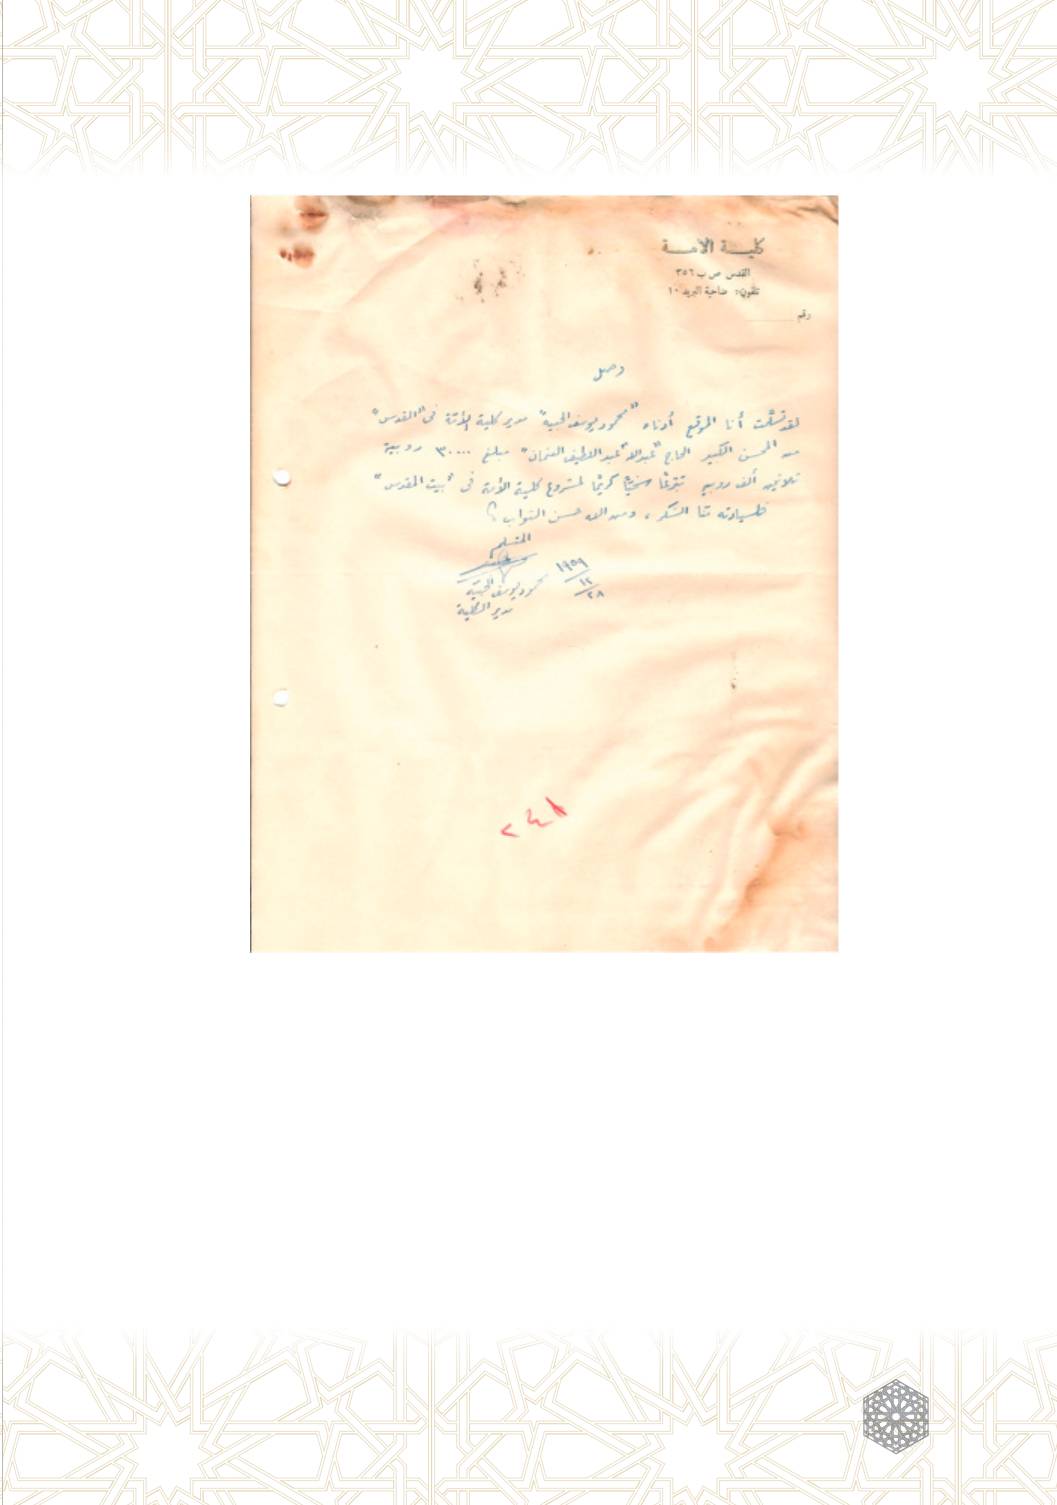 كلية الأمة
القدس ص ب ٣٥٦
تلفون: ضاحية البريد ١٠
رقم
وصل
لقد تسلمت أنا الموقع أدناه "محمود يوسف الحبية" مدير كلية الأمة في "القدس"
من المحسن الكبير الحاج "عبدالله عبد اللطيف العثمان" مبلغ ٣٠٠٠٠ روبية
ثلاثين ألف روبية تبرعًا سخيًا كريمًا لمشروع كلية الأمة في "بيت المقدس"
فلسيادته منا الشكر، ومن الله حسن الثواب؟
المتسلم
١٩٥٩/١٢/٢٨
محمود يوسف الحبية
مدير الكلية
٢٤٨